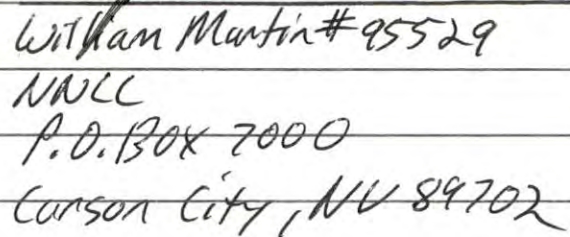 William Martin #95529
NNCC
P.O. Box 7000
Carson City, NV 89702